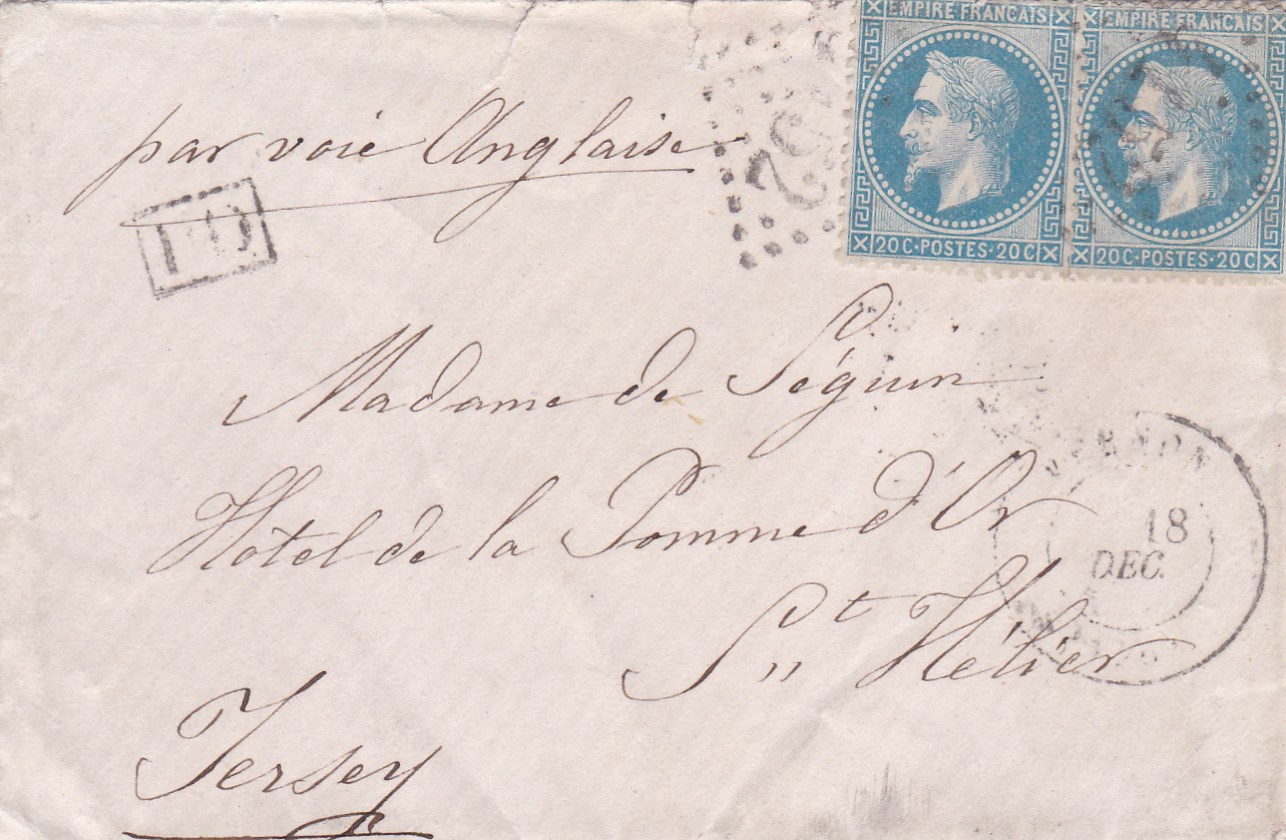 EMPIRE FRANÇAIS EMPIRE FRANÇAIS
20 C · POSTES · 20 C 20 C · POSTES · 20 C
par voie Anglaise
Madame de Séguin
Hôtel de la Pomme d'Or
St Hélier
Jersey
VERNON
18
DEC.